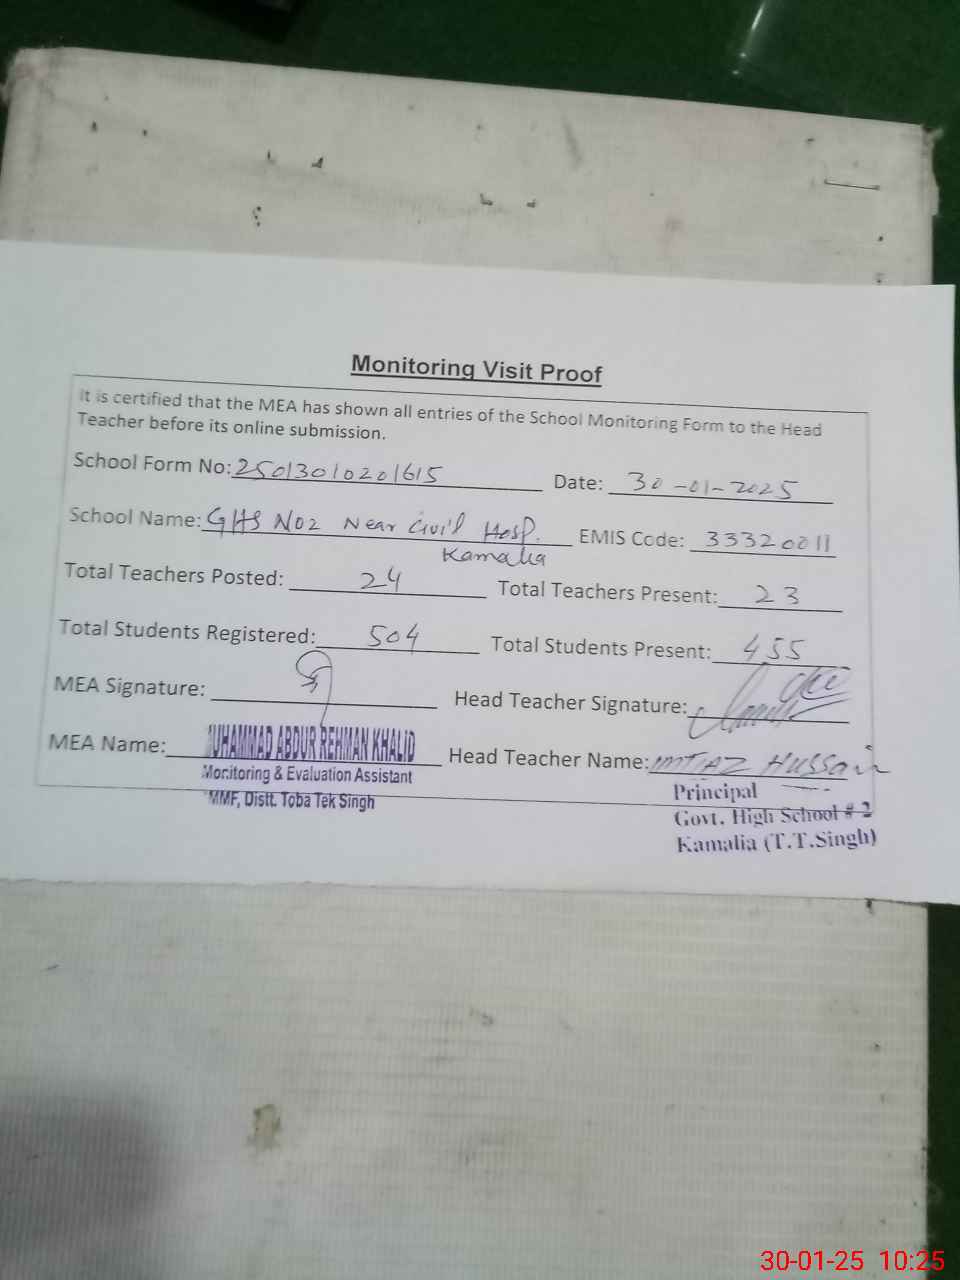 Monitoring Visit Proof
It is certified that the MEA has shown all entries of the School Monitoring Form to the Head
Teacher before its online submission.
School Form No: 25013010201615 Date: 30-01-2025
School Name: GHS No2 Near Civil Hosp. EMIS Code: 33320011
Kamalia
Total Teachers Posted: 24 Total Teachers Present: 23
Total Students Registered: 504 Total Students Present: 455
MEA Signature: Head Teacher Signature:
MEA Name: MUHAMMAD ABDUR REHMAN KHALID Head Teacher Name: IMTIAZ HUSSain
Monitoring & Evaluation Assistant
MMF, Distt. Toba Tek Singh
Principal
Govt. High School # 2
Kamalia (T.T.Singh)
30-01-25 10:25